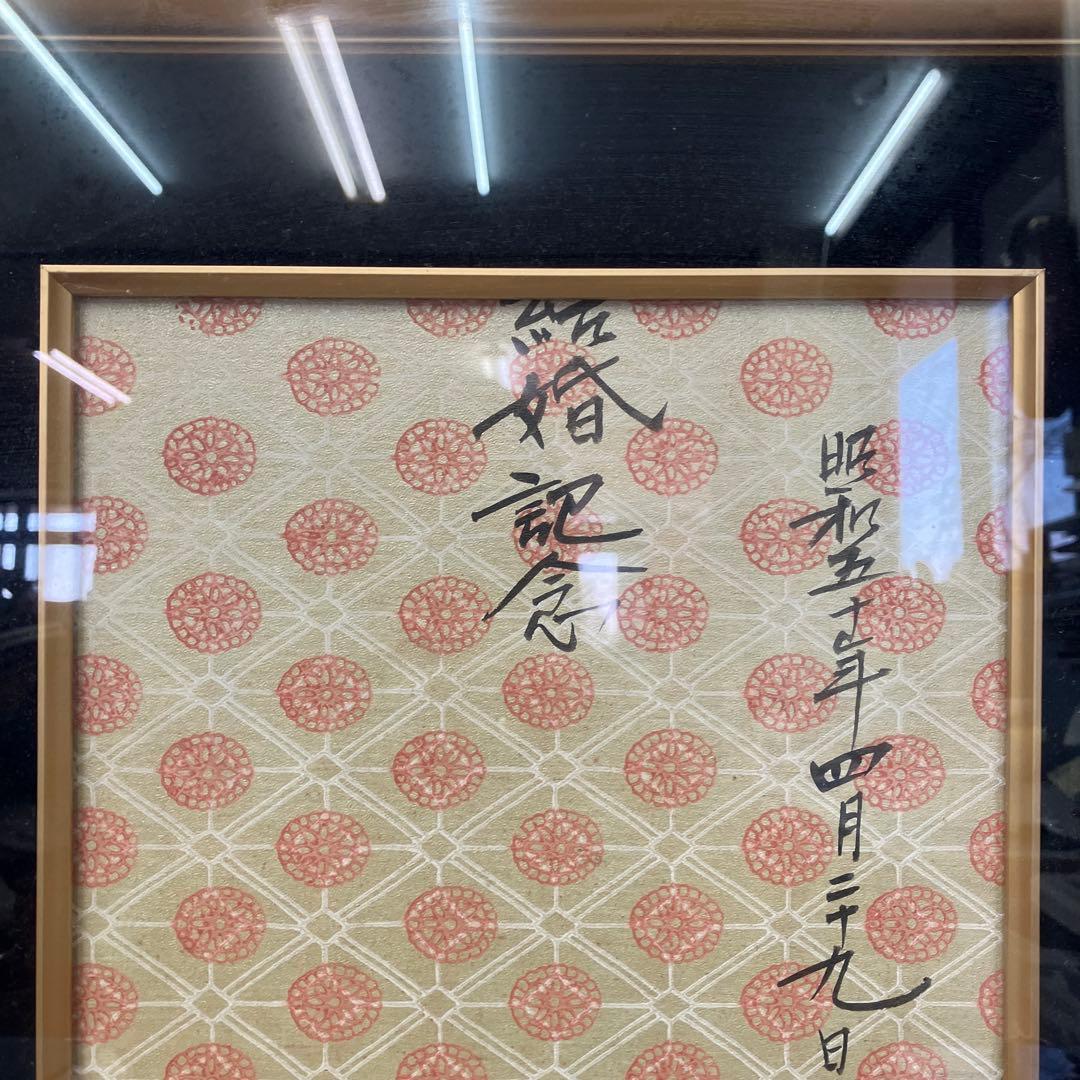 昭和五十年四月二十九日
結婚記念